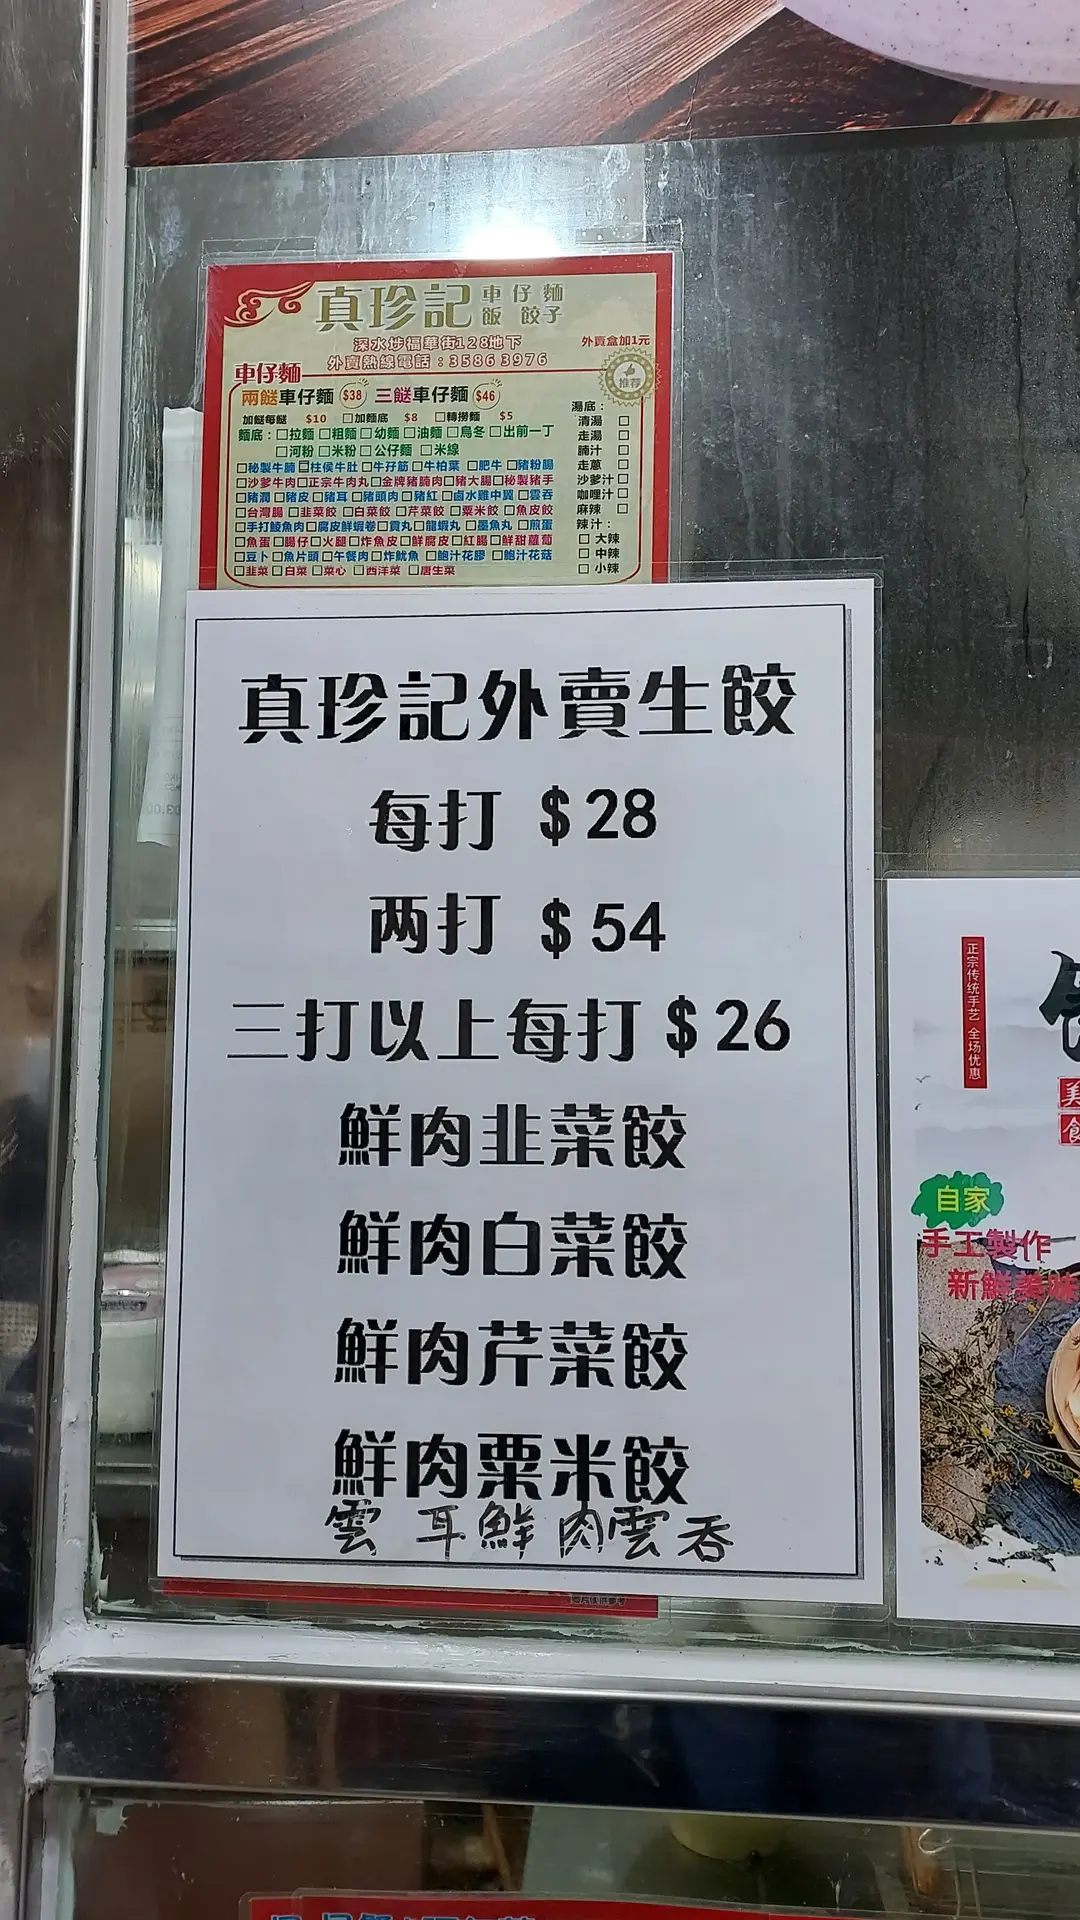 真珍記 車仔麵
飯 餃子
深水埗福華街128地下
外賣盒加1元
外賣熱線電話：35863976
推荐
車仔麵
兩餸車仔麵 $38 三餸車仔麵 $46
加餸每餸 $10 □加麵底 $8 □轉撈麵 $5
麵底：□拉麵□粗麵□幼麵□油麵□烏冬□出前一丁
□河粉□米粉□公仔麵□米線
□秘製牛腩□柱侯牛肚□牛孖筋□牛柏葉□肥牛□豬粉腸
□沙爹牛肉□正宗牛肉丸□金牌豬腩肉□豬大腸□秘製豬手
□豬潤□豬皮□豬耳□豬頭肉□豬紅□鹵水雞中翼□雲吞
□台灣腸□韭菜餃□白菜餃□芹菜餃□粟米餃□魚皮餃
□手打鯪魚肉□腐皮鮮蝦卷□貢丸□龍蝦丸□墨魚丸□煎蛋
□魚蛋□腸仔□火腿□炸魚皮□鮮腐皮□紅腸□鮮甜蘿蔔
□豆卜□魚片頭□午餐肉□炸魷魚□鮑汁花膠□鮑汁花菇
□韭菜□白菜□菜心□西洋菜□唐生菜
湯底：
清湯□
走湯□
腩汁□
走蔥□
沙爹汁□
咖哩汁□
麻辣□
辣汁：
□大辣
□中辣
□小辣
真珍記外賣生餃
每打 $28
两打 $54
三打以上每打 $26
鮮肉韭菜餃
鮮肉白菜餃
鮮肉芹菜餃
鮮肉粟米餃
雲耳鮮肉雲吞
正宗传统手艺 全场优惠
自家
手工製作
新鮮美味